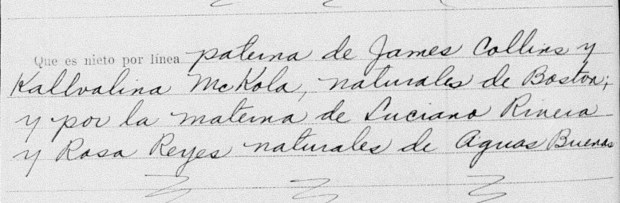 Que es nieto por línea paterna de James Collins y
Kallvalina McKola, naturales de Boston;
y por la materna de Luciano Rivera
y Rosa Reyes naturales de Aguas Buenas